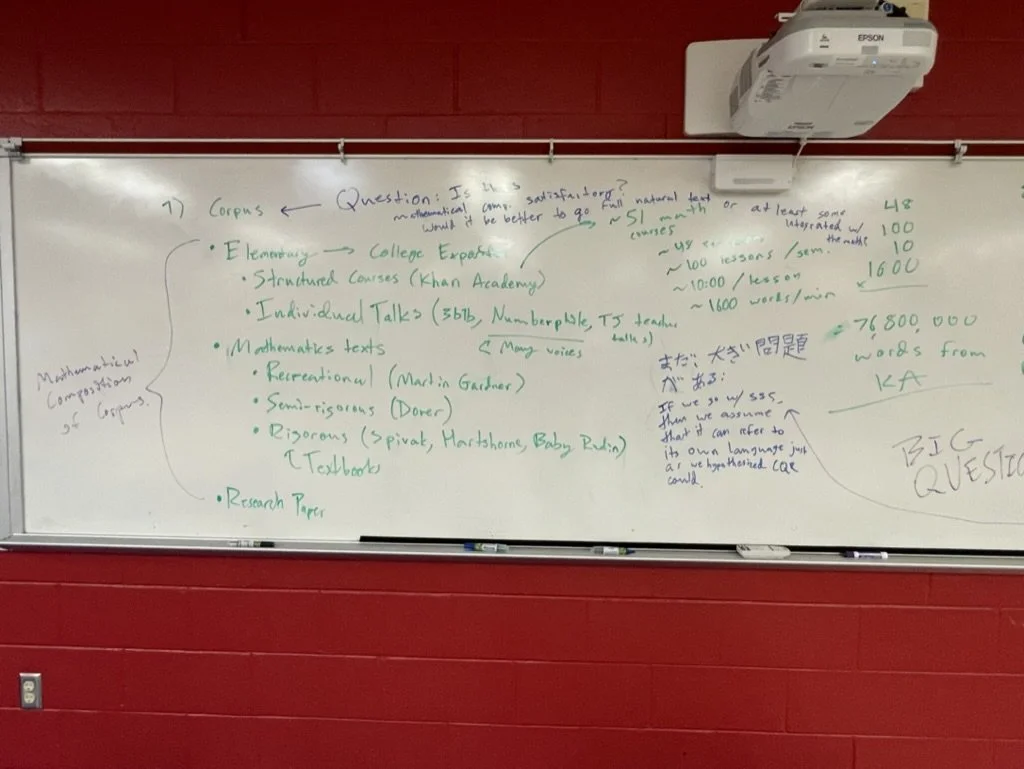 EPSON
EPSON
1) Corpus ← Question: Is this
mathematical comp. satisfactory?
Would it be better to go full natural text or at least some
integrated w/
the maths
• Elementary → College Expository
• Structured Courses (Khan Academy)
• Individual Talks (3b1b, Numberphile, TJ teacher
talks)
↑ Many voices
• Mathematics texts
• Recreational (Martin Gardner)
• Semi-rigorous (Dorer)
• Rigorous (Spivak, Hartshorne, Baby Rudin)
↑ Textbooks
• Research Paper
Mathematical
Composition
of Corpus.
~ 51 math
courses
~ 48
~ 100 lessons / sem.
~ 10:00 / lesson
~ 1600 words/min
48
100
10
× 1600
= 76,800,000
words from
KA
まだ、大きい問題
がある:
If we go w/ SSS,
then we assume
that it can refer to
its own language just
as we hypothesized CQE
could.
BIG
QUESTIO